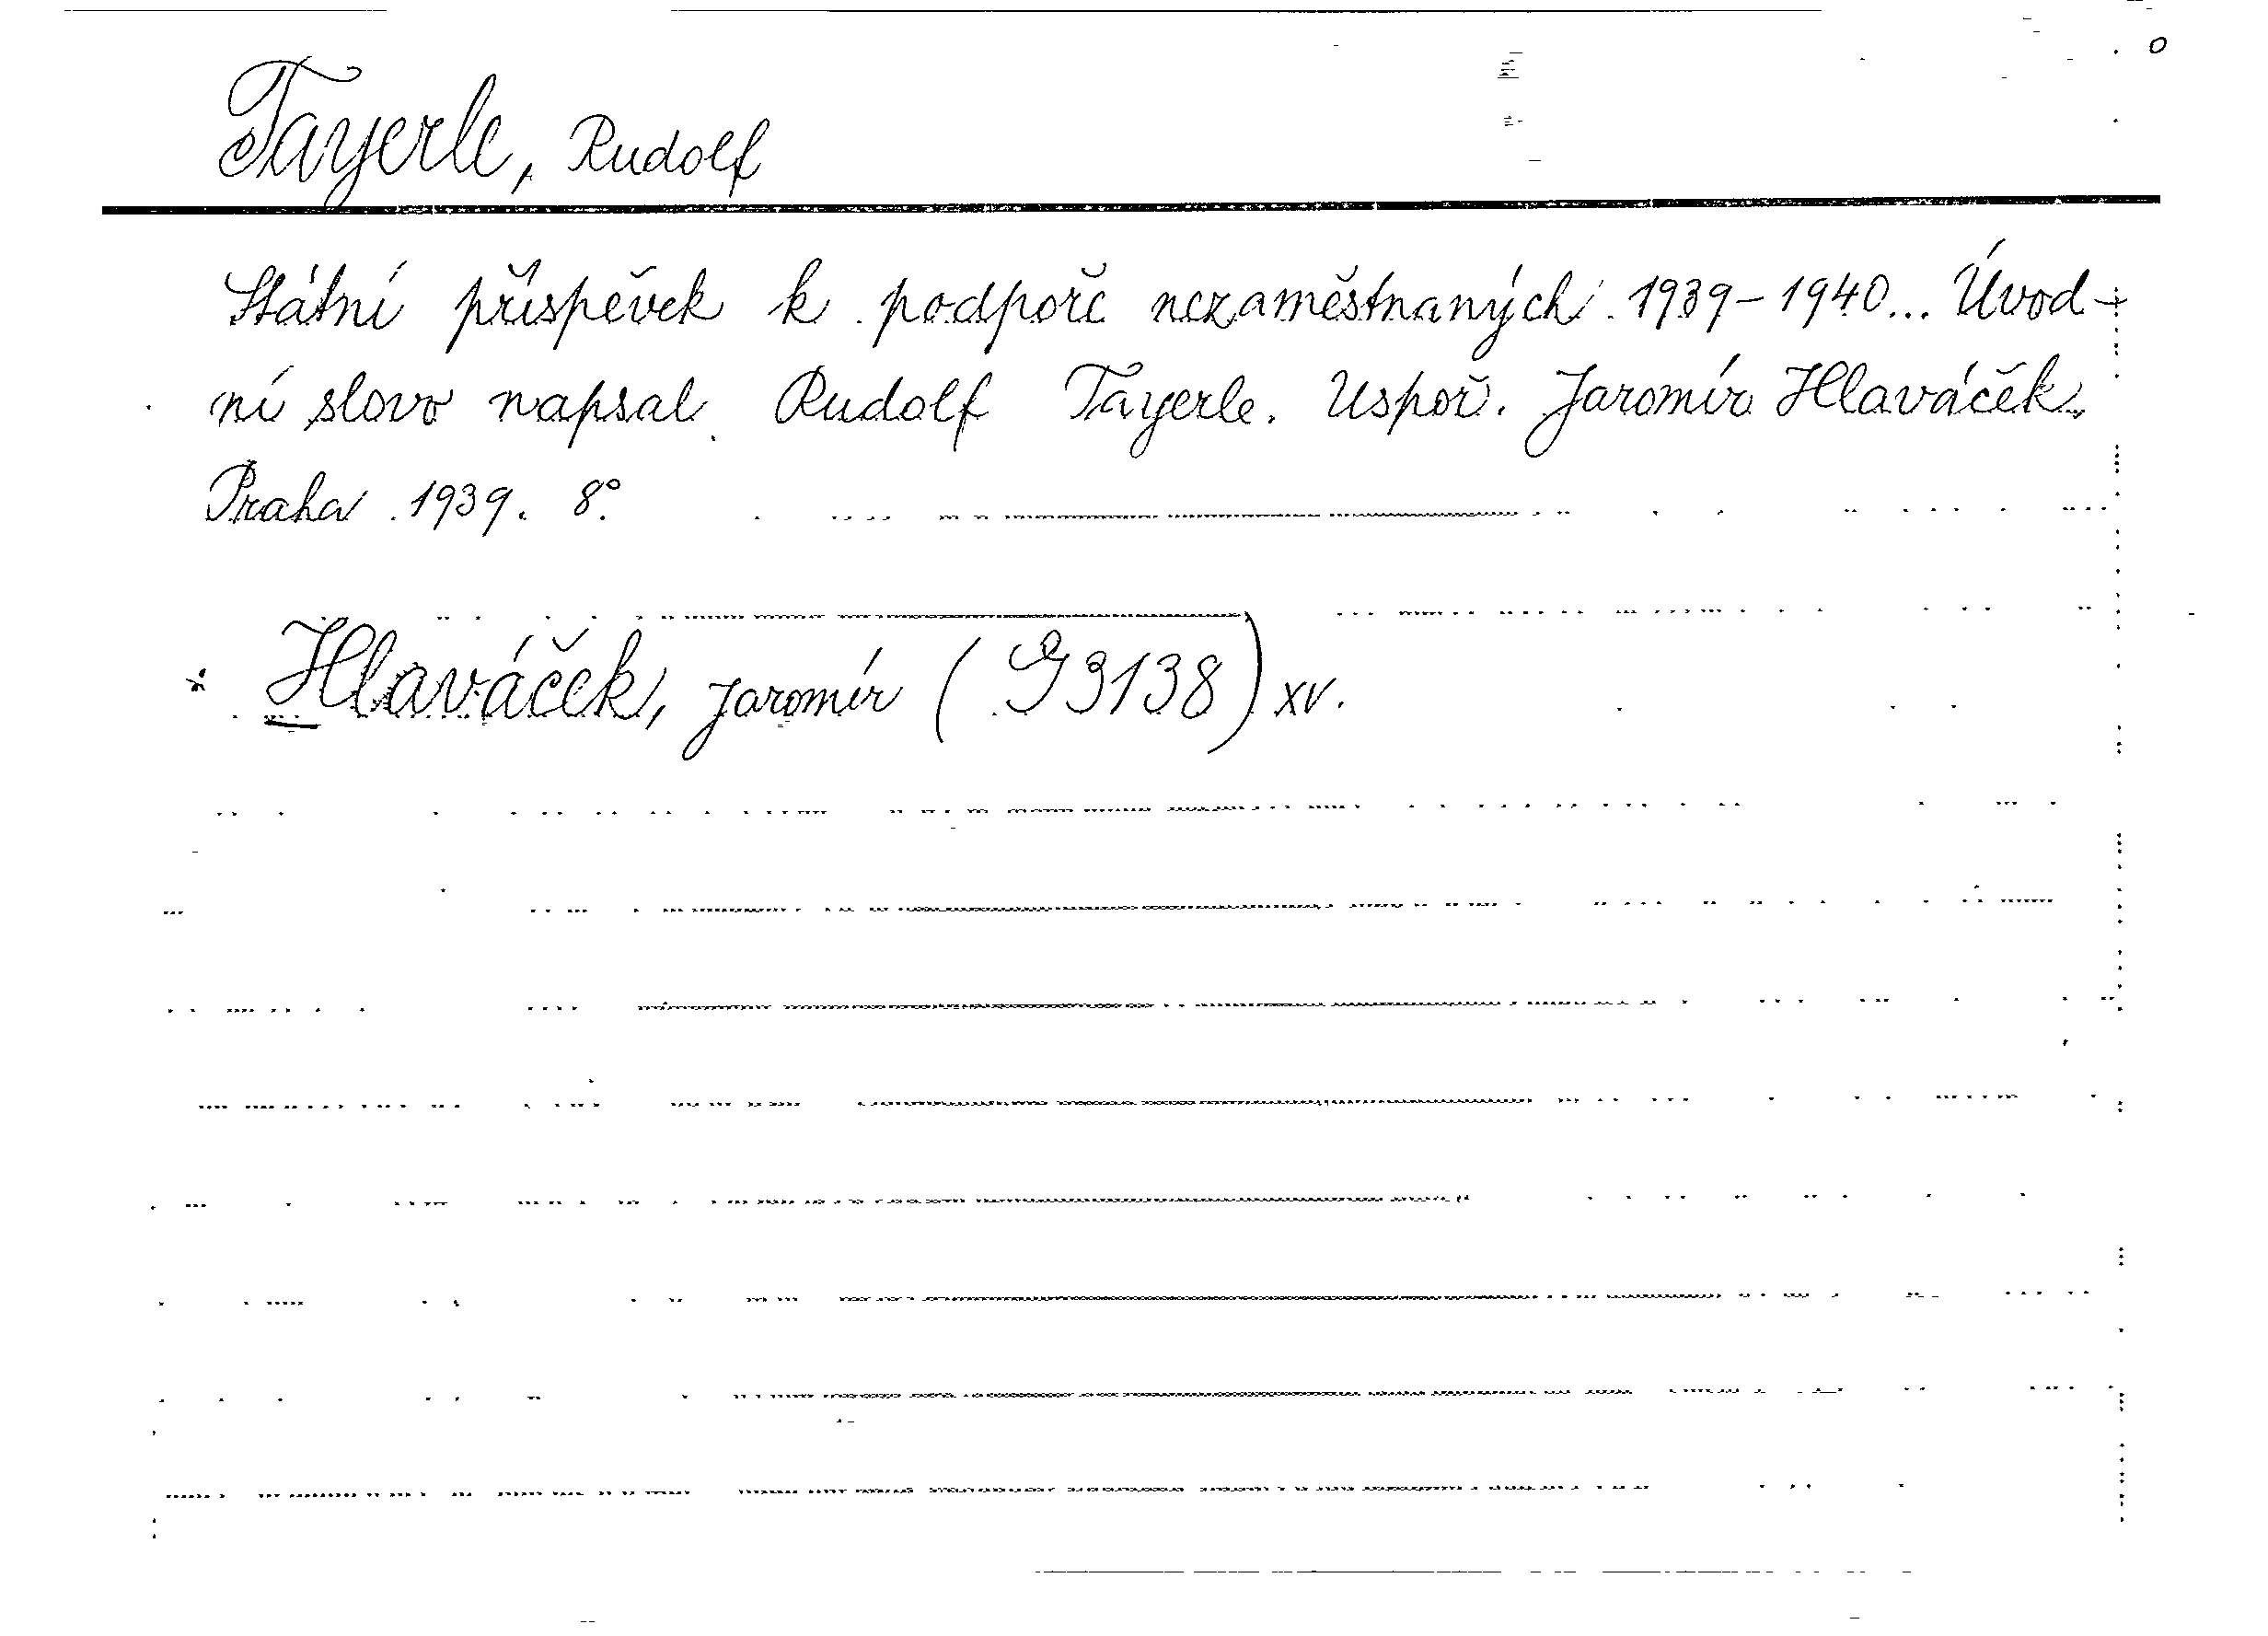 Tayerle, Rudolf
Státní příspěvek k podpoře nezaměstnaných 1939-1940... Úvod-
ní slovo napsal Rudolf Tayerle. Uspoř. Jaromír Hlaváček.
Praha 1939. 8°.
* Hlaváček, Jaromír (G3138) XV.